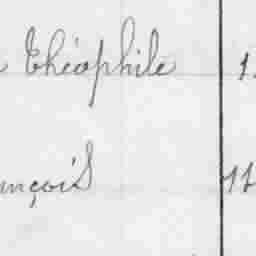 Théophile 1
nçois 11